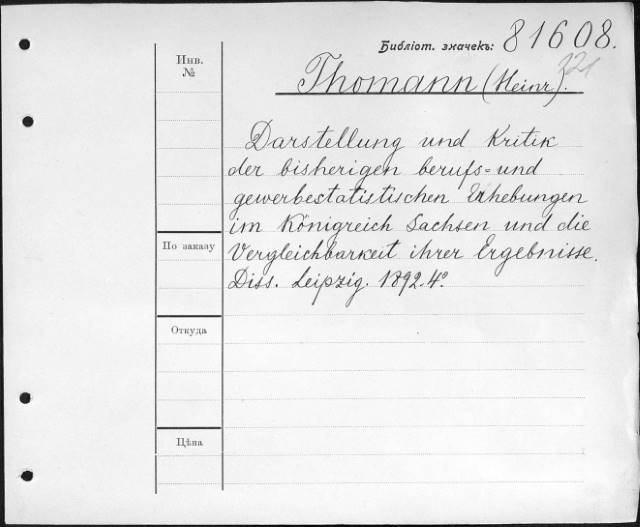 Библіот. значекъ: 81608.
321
Инв.
№
Thomann (Heinr).
Darstellung und Kritik
der bisherigen berufs- und
gewerbestatistischen Erhebungen
im Königreich Sachsen und die
Vergleichbarkeit ihrer Ergebnisse.
Diss. Leipzig. 1892. 4°
По заказу
Откуда
Цѣна